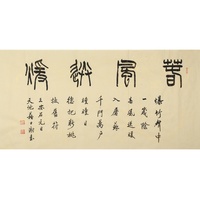 春風送暖
爆竹聲中
一歲除
春風送暖
入屠蘇
千門萬戶
曈曈日
總把新桃
換舊符
王安石元日